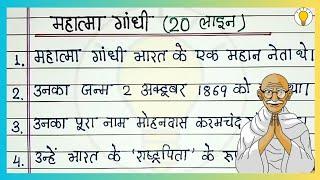 महात्मा गांधी (20 लाइन)
1. महात्मा गांधी भारत के एक महान नेता थे।
2. उनका जन्म 2 अक्टूबर 1869 को था।
3. उनका पूरा नाम मोहनदास करमचंद
4. उन्हें भारत के 'राष्ट्रपिता' के रू